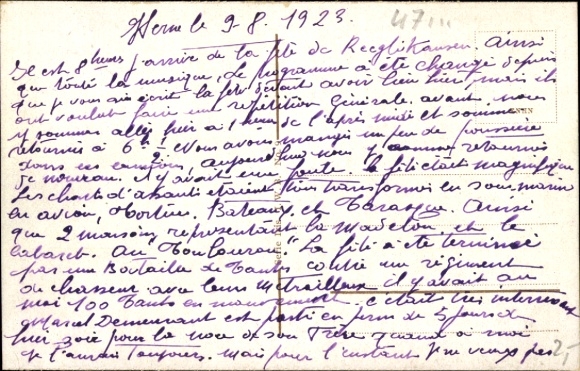 Herne le 9-8. 1923.
47
Il est 8 heures j'arrive de la fête de Recglikausen. Ainsi
que toute la musique, Le programme a été changé depuis
que je vous ai écrit la fête devait avoir lieu hier, mais ils
ont voulu faire une répétition Générale. avant. nous
y sommes allés hier à 1 heure de l'après midi et sommes
retournés à 6h Nous avons mangés un peu de poussière
dans les camions aujourd'hui nous y sommes retournés
de nouveau. il y avait une foule. la fête était magnifique
Les chars d'assaut étaient très transformés en sous marin
en avion, Mortier. Bateaux et Tarasque. Ainsi
que 2 maisons représentant la Madelon et le
cabaret. Au Toulourou. La fête a été terminée
par une Bataille de Tanks contre un régiment
de chasseur avec leurs mitrailleuses il y avait au
moi 100 Tanks en mouvement. c'était très intéressant
Marcel Demeurant est parti en perm de 3 jours
hier soir pour la noce de son Frère quand à moi
je l'aurai Toujours. mais pour l'instant je ne veux pas
2,-